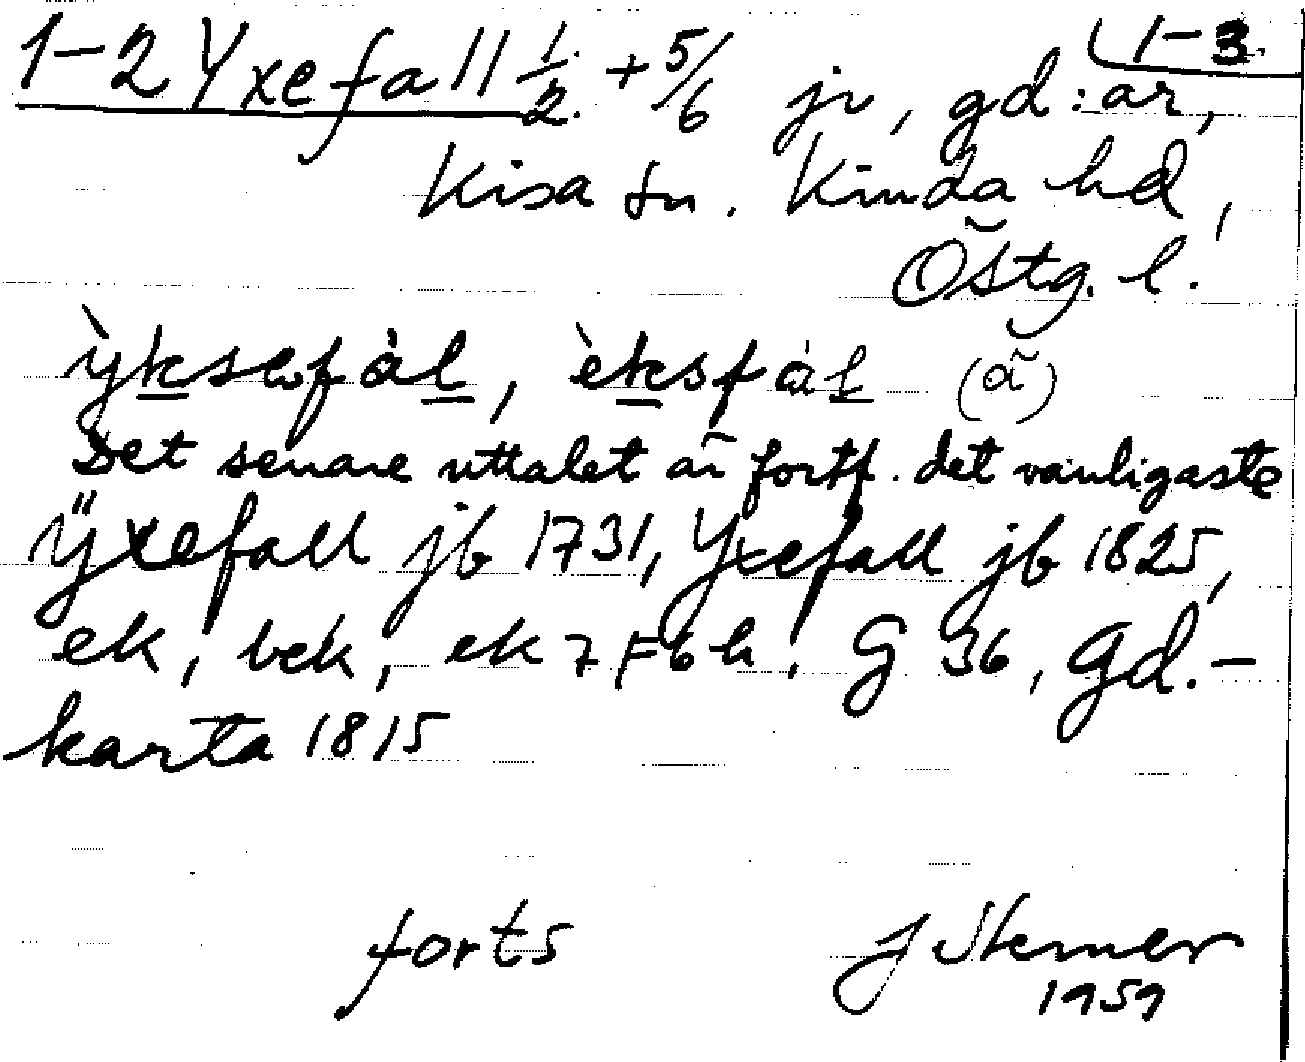 1-3
1-2 Yxefall 1/2 + 5/6 jr, gd:ar,
Kisa sn. Kinda hd,
Östg. l.
ỳksefàl, èksfàl (ã)
Det senare uttalet är fortf. det vanligaste
Ÿxefall jb 1731, Yxefall jb 1825,
ek, bek, ek 7 F 6 h, G 36, Gd.-
karta 1815
forts
1959